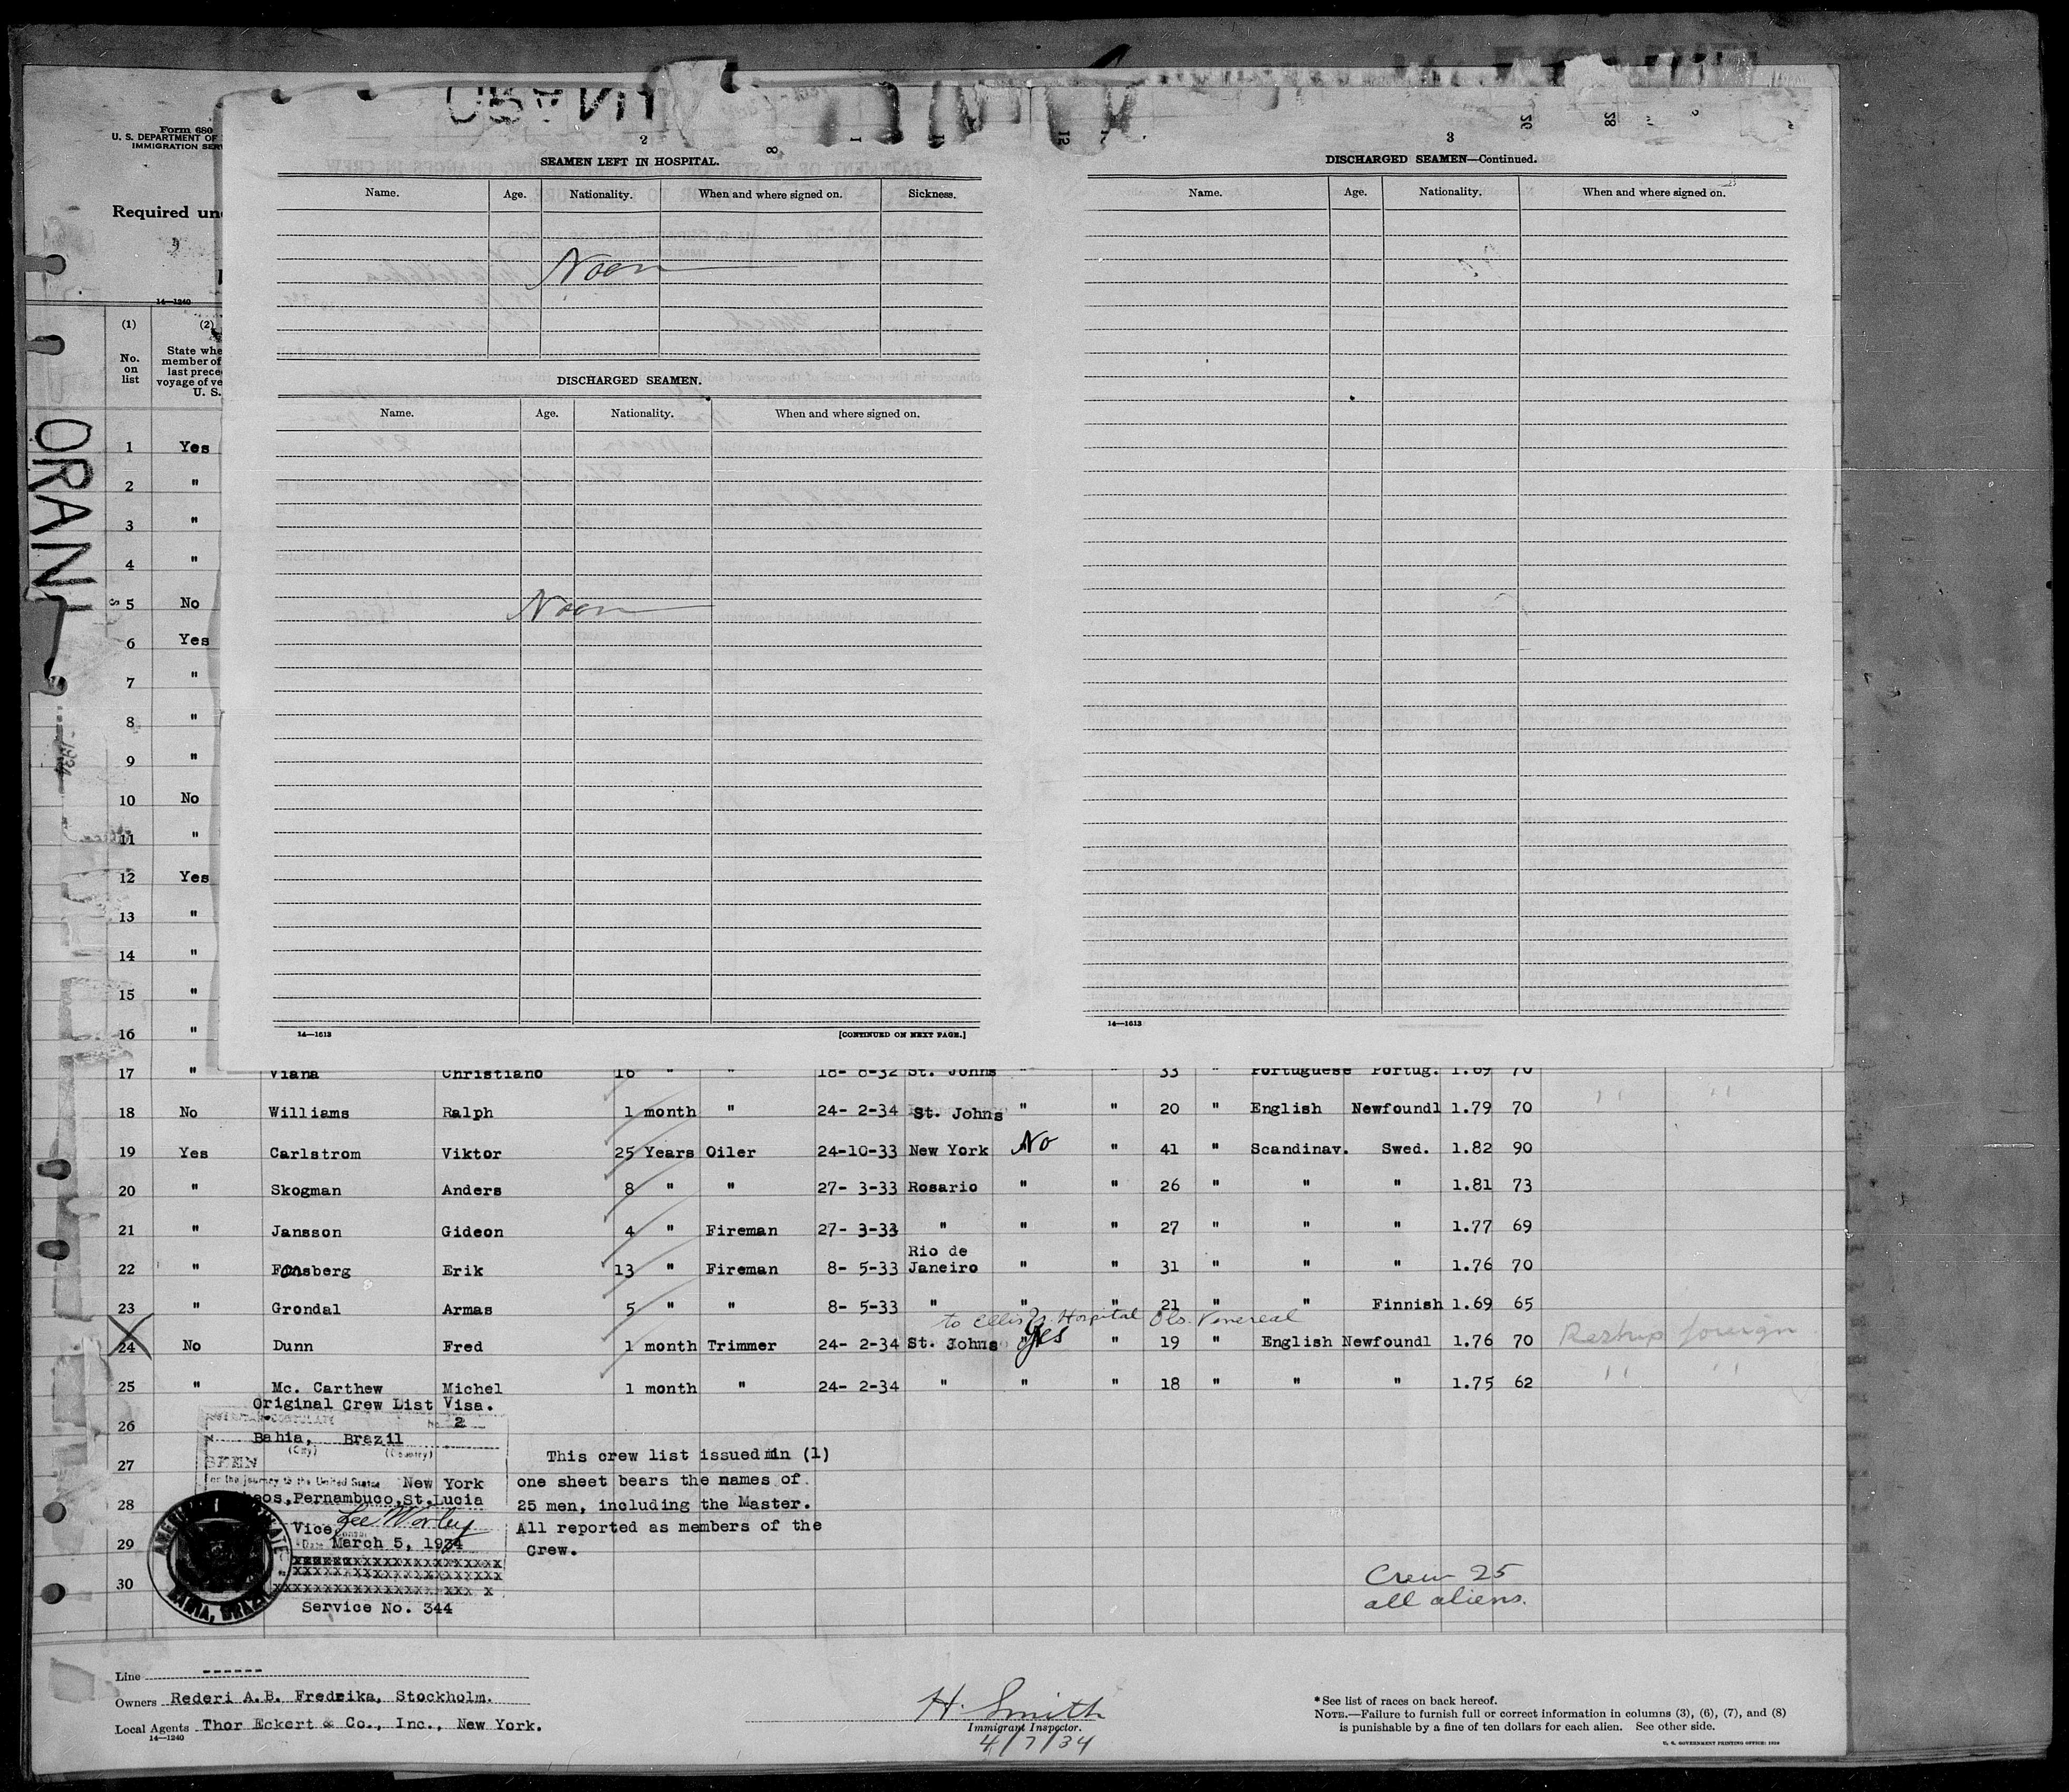 Form 680
U. S. DEPARTMENT OF
IMMIGRATION SERV
Required un
14—1240
ORAN
2
SEAMEN LEFT IN HOSPITAL.
Name. Age. Nationality. When and where signed on. Sickness.
Noon
DISCHARGED SEAMEN.
Name. Age. Nationality. When and where signed on.
Noon
14—1613 [CONTINUED ON NEXT PAGE.]
3
DISCHARGED SEAMEN—Continued.
Name. Age. Nationality. When and where signed on.
14—1613
(1) (2)
No. on list
State whe
member of
last prece
voyage of ve
U. S.
1 Yes
2 "
3 "
4 "
5 No
6 Yes
7 "
8 "
9 "
10 No
11 "
12 Yes
13 "
14 "
15 "
16 "
17 " Viana Christiano 16 " " 18- 8-32 St. Johns " " 33 " Portuguese Portug. 1.69 70
18 No Williams Ralph 1 month " 24- 2-34 St. Johns " " 20 " English Newfoundl 1.79 70
19 Yes Carlstrom Viktor 25 Years Oiler 24-10-33 New York No " 41 " Scandinav. Swed. 1.82 90
20 " Skogman Anders 8 " " 27- 3-33 Rosario " " 26 " " " 1.81 73
21 " Jansson Gideon 4 " Fireman 27- 3-33 " " " 27 " " " 1.77 69
22 " Fonsberg Erik 13 " Fireman 8- 5-33 Rio de Janeiro " " 31 " " " 1.76 70
23 " Grondal Armas 5 " " 8- 5-33 " " " 21 " " Finnish 1.69 65
to Ellis Is. Hospital Obs. Venereal
24 No Dunn Fred 1 month Trimmer 24- 2-34 St. Johns Yes " 19 " English Newfoundl 1.76 70 Reship foreign
25 " Mc. Carthew Michel 1 month " 24- 2-34 " " " 18 " " " 1.75 62 " "
26
27
28
29
30
Original Crew List Visa.
AMERICAN CONSULATE
No. 2
Bahia, Brazil
(City) (Country)
SEEN
For the journey to the United States New York
eos, Pernambuco, St. Lucia
Vice Lee Worley
Date March 5, 1934
Service No. 344
BAHIA, BRAZIL
This crew list issued in (1)
one sheet bears the names of
25 men, including the Master.
All reported as members of the
Crew.
Crew 25
all aliens.
Line ------
Owners Rederi A.B. Fredrika, Stockholm.
Local Agents Thor Eckert & Co., Inc., New York.
14—1240
H. Smith
Immigrant Inspector.
4/7/34
* See list of races on back hereof.
NOTE.—Failure to furnish full or correct information in columns (3), (6), (7), and (8)
is punishable by a fine of ten dollars for each alien. See other side.